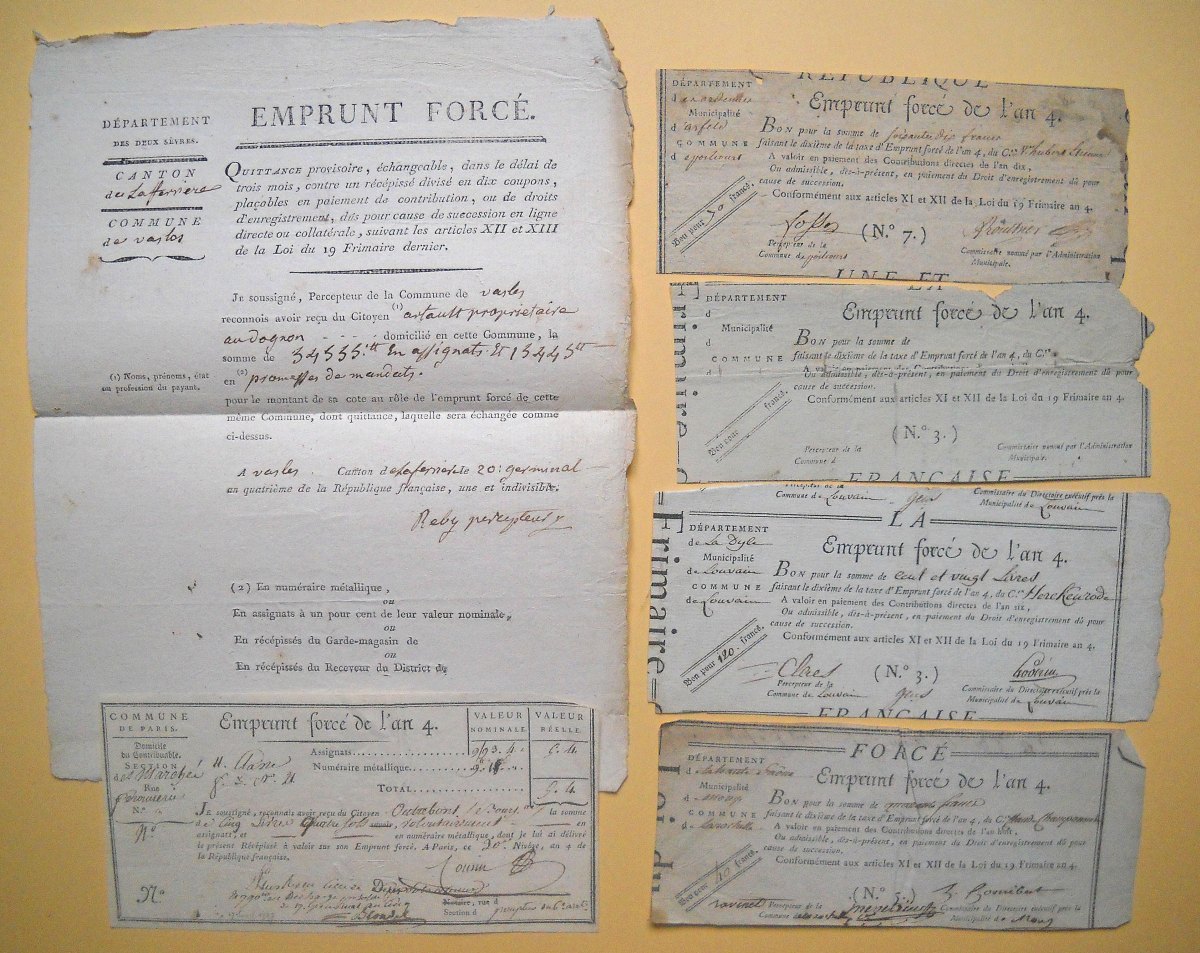 DÉPARTEMENT
DES DEUX SÈVRES.
CANTON
de Lafferrière
COMMUNE
de vasles
EMPRUNT FORCÉ.
QUITTANCE provisoire, échangeable, dans le délai de
trois mois, contre un récépissé divisé en dix coupons,
plaçables en paiement de contribution, ou de droits
d'enregistrement, dûs pour cause de succession en ligne
directe ou collatérale, suivant les articles XII et XIII
de la Loi du 19 Frimaire dernier.
JE soussigné, Percepteur de la Commune de vasles
reconnois avoir reçu du Citoyen (1) artault propriétaire
au dognon domicilié en cette Commune, la
somme de 34555 tt En assignats Et 15445 tt
en (2) promesses de mandats.
(1) Noms, prénoms, état
ou profession du payant.
pour le montant de sa cote au rôle de l'emprunt forcé de cette
même Commune, dont quittance, laquelle sera échangée comme
ci-dessus.
A vasles Canton de Lafferrière le 20 : germinal
an quatrième de la République française, une et indivisible.
Reby percepteur
(2) En numéraire métallique,
ou
En assignats à un pour cent de leur valeur nominale,
ou
En récépissés du Garde-magasin de
ou
En récépissés du Receveur du District de
COMMUNE
DE PARIS.
Domicile
du Contribuable.
SECTION
des Marchés
Rue
N.°
N°
Emprunt forcé de l'an 4.
VALEUR
NOMINALE
VALEUR
RÉELLE.
Assignats
Numéraire métallique
TOTAL
JE soussigné, reconnois avoir reçu du Citoyen la somme
de Cinq Livres quatre sols en
assignats, et en numéraire métallique, dont je lui ai délivré
le présent Récépissé à valoir sur son Emprunt forcé. A Paris, ce 30 Nivôse, an 4 de
la République française.
N°
Notaire, rue
Section d
Blondel
RÉPUBLIQUE
DÉPARTEMENT
d es ardennes
Municipalité
d' asfeld
COMMUNE
d
Emprunt forcé de l'an 4.
BON pour la somme de soixante dix francs
faisant le dixième de la taxe d'Emprunt forcé de l'an 4, du C.en
A valoir en paiement des Contributions directes de l'an dix,
Ou admissible, dès-à-présent, en paiement du Droit d'enregistrement dû pour
cause de succession.
Conformément aux articles XI et XII de la Loi du 19 Frimaire an 4.
Bon pour 70 francs.
(N.° 7.)
Percepteur de la
Commune de
Commissaire nommé par l'Administration
Municipale.
UNE ET
LA
Frimaire
DÉPARTEMENT
d
Municipalité
d
COMMUNE
d
Emprunt forcé de l'an 4.
BON pour la somme de
faisant le dixième de la taxe d'Emprunt forcé de l'an 4, du C.en
A valoir en paiement des Contributions directes
Ou admissible, dès-à-présent, en paiement du Droit d'enregistrement dû pour
cause de succession.
Conformément aux articles XI et XII de la Loi du 19 Frimaire an 4.
Bon pour francs.
(N.° 3.)
Percepteur de la
Commune d
Commissaire nommé par l'Administration
Municipale.
FRANÇAISE
Percepteur de la
Commune de Louvain
Commissaire du Directoire exécutif près la
Municipalité de Louvain
LA
Frimaire
DÉPARTEMENT
de La Dyle
Municipalité
de Louvain
COMMUNE
de Louvain
Emprunt forcé de l'an 4.
BON pour la somme de cent et vingt Livres
faisant le dixième de la taxe d'Emprunt forcé de l'an 4, du C.en Herckenrode
A valoir en paiement des Contributions directes de l'an six,
Ou admissible, dès-à-présent, en paiement du Droit d'enregistrement dû pour
cause de succession.
Conformément aux articles XI et XII de la Loi du 19 Frimaire an 4.
Bon pour 120 francs.
Claes
(N.° 3.)
Percepteur de la
Commune de Louvain
Commissaire du Directoire exécutif près la
Municipalité de Louvain
FRANÇAISE
FORCÉ
du
DÉPARTEMENT
d
Municipalité
d
COMMUNE
d
Emprunt forcé de l'an 4.
BON pour la somme de quarante francs
faisant le dixième de la taxe d'Emprunt forcé de l'an 4, du C.en
A valoir en paiement des Contributions directes de l'an
Ou admissible, dès-à-présent, en paiement du Droit d'enregistrement dû pour
cause de succession.
Conformément aux articles XI et XII de la Loi du 19 Frimaire an 4.
Bon pour 40 francs.
(N.° 5.)
Percepteur de la
Commune de
Commissaire du Directoire exécutif près la
Municipalité de